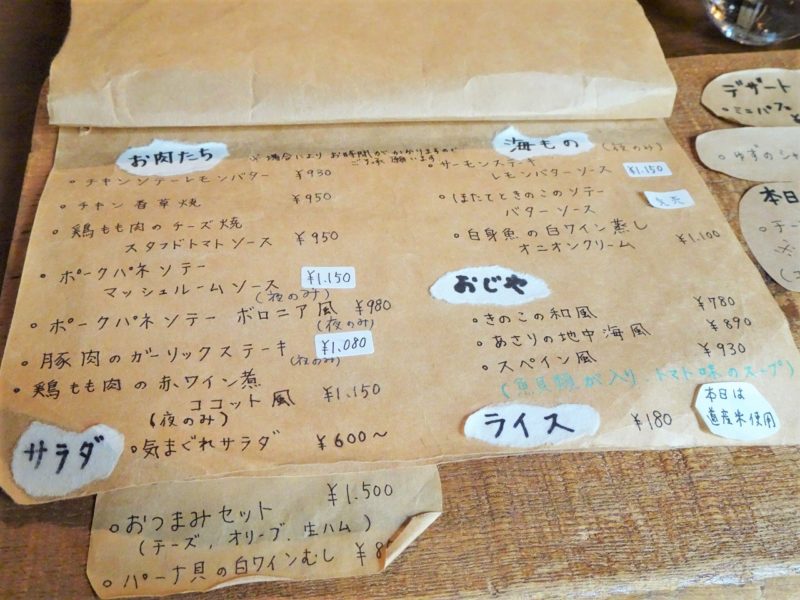 お肉たち
※場合により お時間がかかりますので
ご了承 願います
・チキンソテーレモンバター ¥930
・チキン香草焼 ¥950
・鶏もも肉のチーズ焼
スタフドトマトソース ¥950
・ポークパネソテー
マッシュルームソース ¥1.150
(夜のみ)
・ポークパネソテー ボロニア風 ¥980
(夜のみ)
・豚肉のガーリックステーキ ¥1.080
(夜のみ)
・鶏もも肉の赤ワイン煮
ココット風 ¥1.150
(夜のみ)
サラダ
・気まぐれサラダ ¥600〜
・おつまみセット ¥1.500
(チーズ、オリーブ、生ハム)
・パーナ貝の白ワインむし ¥8
海もの (夜のみ)
・サーモンステーキ
レモンバターソース ¥1.150
・ほたてときのこのソテー
バターソース
・白身魚の白ワイン蒸し
オニオンクリーム ¥1.100
おじや
・きのこの和風 ¥780
・あさりの地中海風 ¥890
・スペイン風 ¥930
(魚貝類が入り、トマト味のスープ)
ライス ¥180
本日は
道産米使用
デザート
・ミニパフェ
・ゆずのシャ
本日
・チー